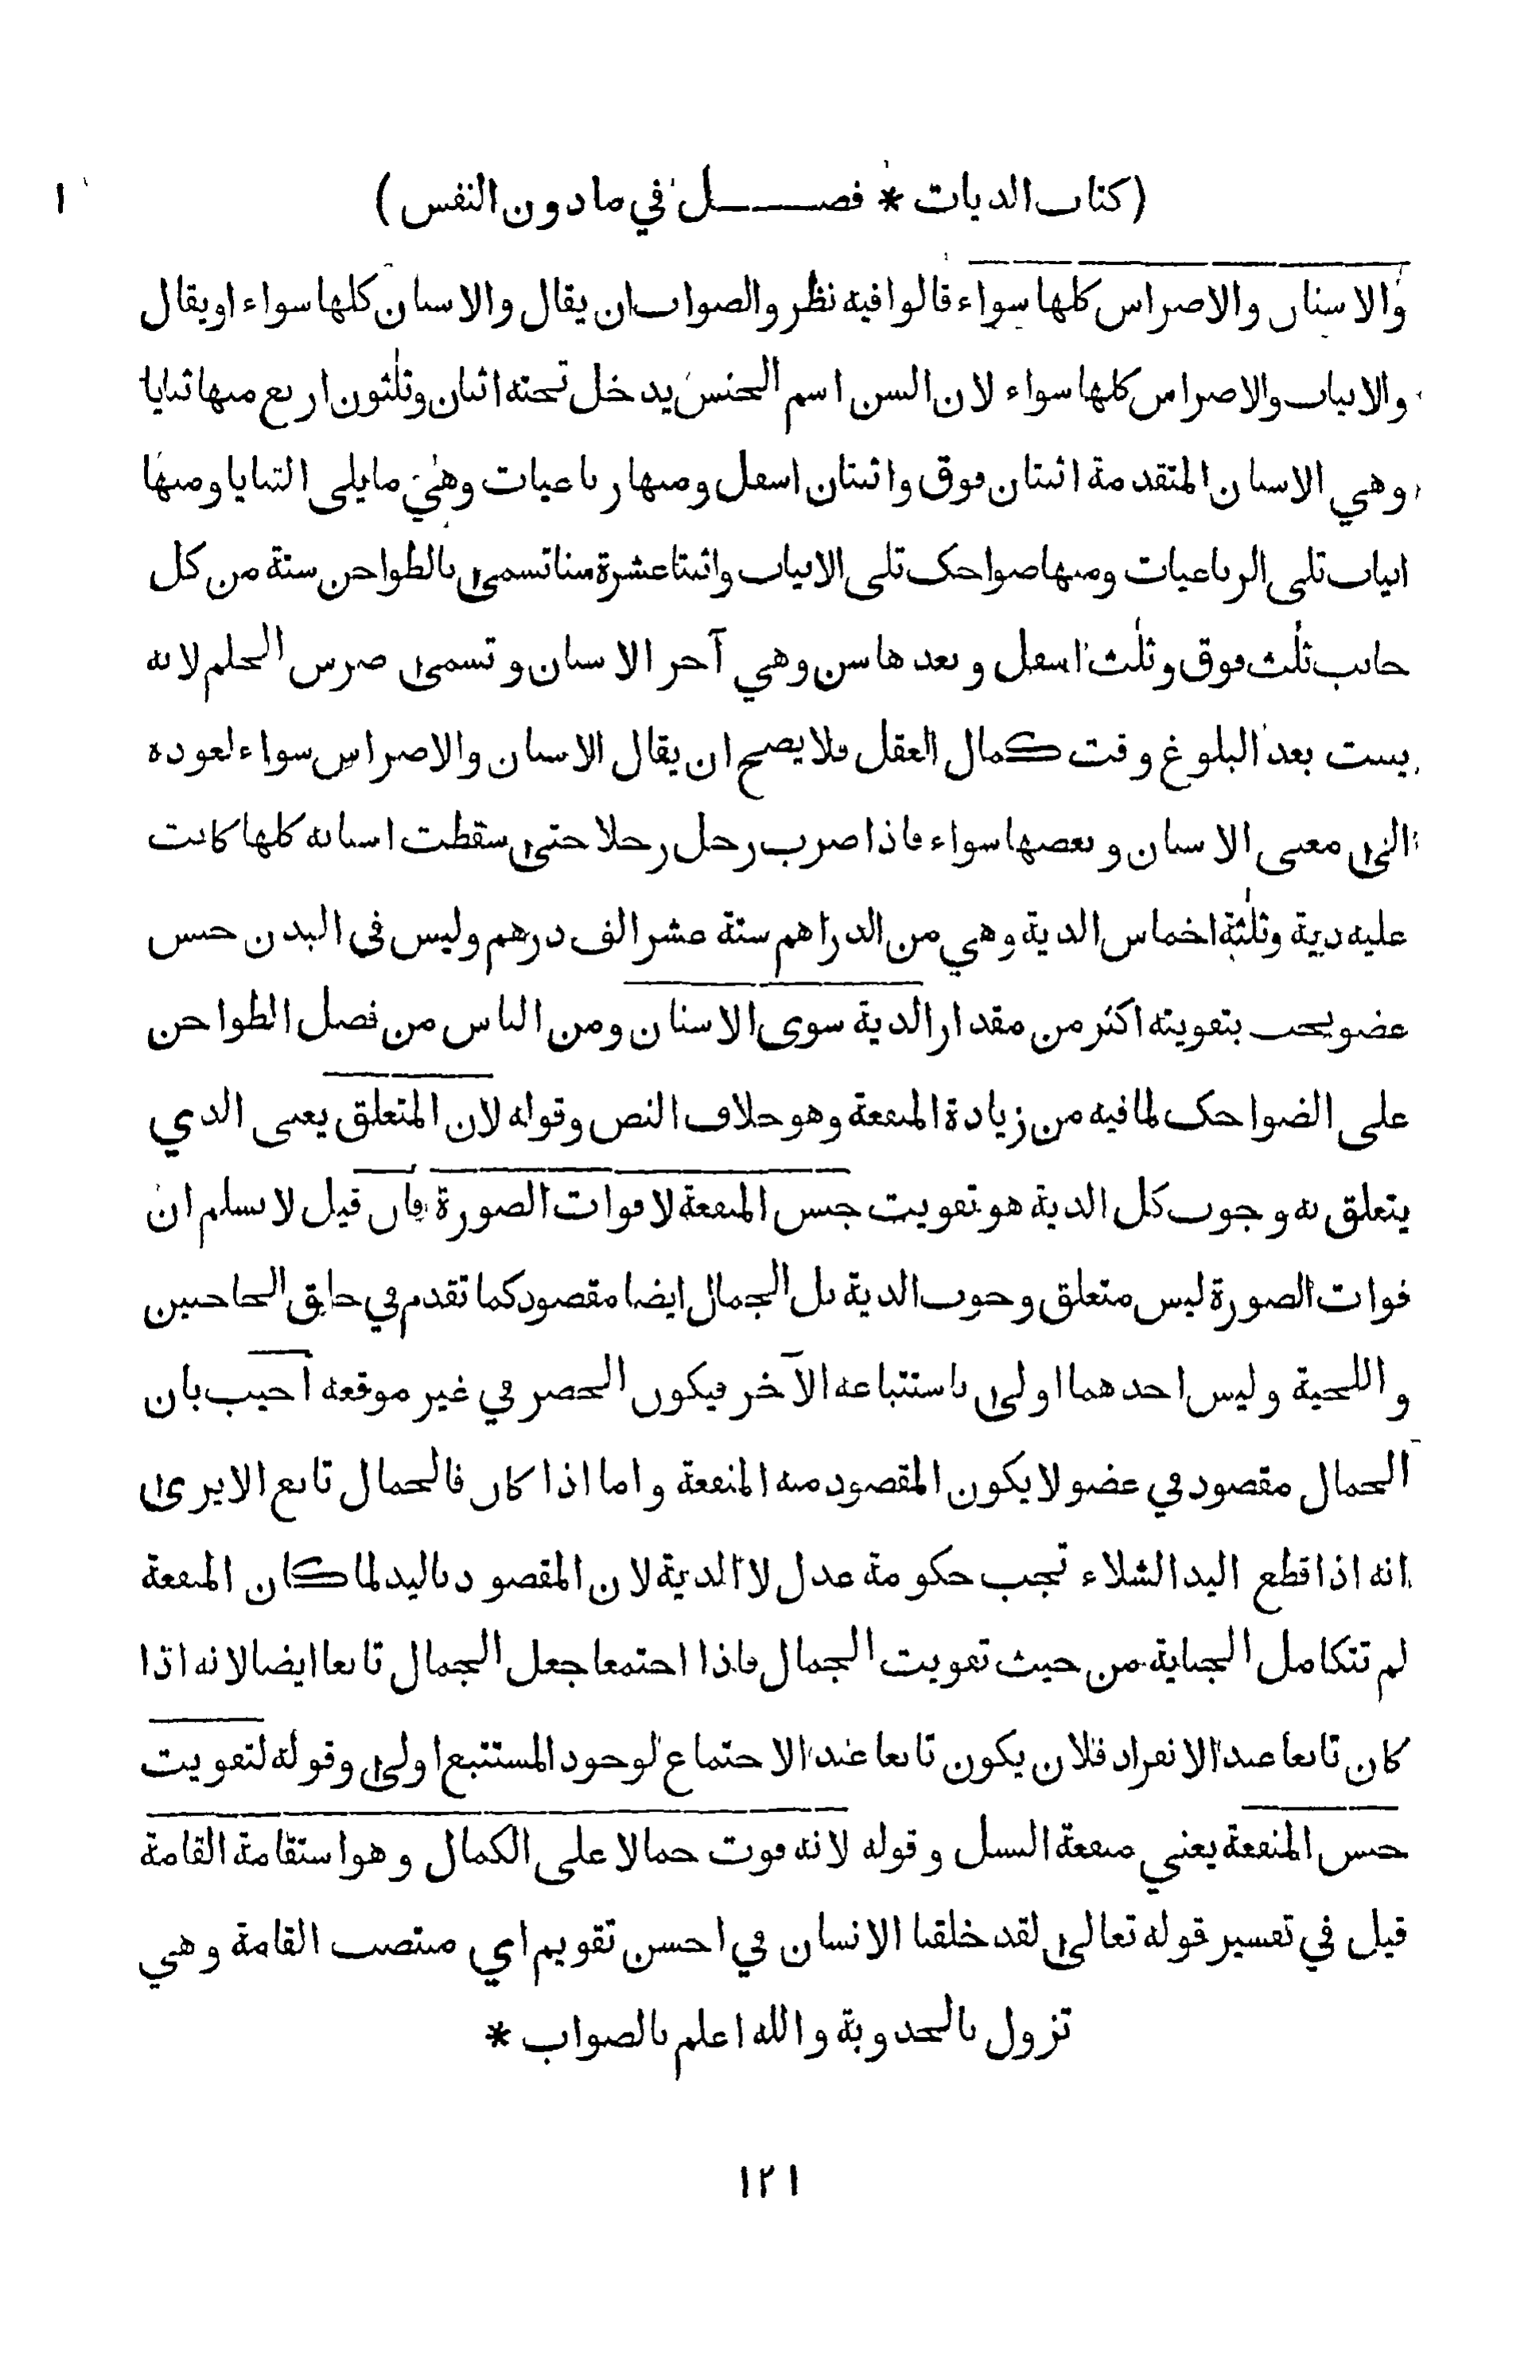 (كتاب الديات * فصـــــل في ما دون النفس)
والاسنان والاضراس كلها سواء قالوا فيه نظر والصواب ان يقال والاسنان كلها سواء او يقال
والانياب والاضراس كلها سواء لان السن اسم الجنس يدخل تحته اثنان وثلثون اربع منها ثنايا
وهي الاسنان المتقدمة اثنتان فوق واثنتان اسفل ومنها رباعيات وهي ما يلي الثنايا ومنها
انياب تلي الرباعيات ومنها ضواحك تلي الانياب واثنتا عشرة سنا تسمى بالطواحن ستة من كل
جانب ثلث فوق وثلث اسفل وبعدها سن وهي آخر الاسنان وتسمى ضرس الحلم لانه
ينبت بعد البلوغ وقت كمال العقل فلا يصح ان يقال الاسنان والاضراس سواء لعوده
الى معنى الاسنان وبعضها سواء فاذا ضرب رجل رجلا حتى سقطت اسنانه كلها كانت
عليه دية وثلثة اخماس الدية وهي من الدراهم ستة عشر الف درهم وليس فى البدن جنس
عضو يجب بتفويته اكثر من مقدار الدية سوى الاسنان ومن الناس من فضل الطواحن
على الضواحك لما فيه من زيادة المنفعة وهو خلاف النص وقوله لان المتعلق يعنى الذي
يتعلق به وجوب كل الدية هو تفويت جنس المنفعة لا فوات الصورة فان قيل لا نسلم ان
فوات الصورة ليس متعلق وجوب الدية بل الجمال ايضا مقصود كما تقدم في حلق الحاجبين
واللحية وليس احدهما اولى باستتباعه الآخر فيكون الحصر في غير موقعه اجيب بان
الجمال مقصود في عضو لا يكون المقصود منه المنفعة واما اذا كان فالجمال تابع الا يرى
انه اذا قطع اليد الشلاء تجب حكومة عدل لا الدية لان المقصود باليد لما كان المنفعة
لم تتكامل الجناية من حيث تفويت الجمال فاذا اجتمعا جعل الجمال تابعا ايضا لانه اذا
كان تابعا عند الانفراد فلان يكون تابعا عند الاجتماع لوجود المستتبع اولى وقوله لتفويت
جنس المنفعة يعني منفعة النسل وقوله لانه فوت جمالا على الكمال وهو استقامة القامة
قيل في تفسير قوله تعالى لقد خلقنا الانسان في احسن تقويم اي منتصب القامة وهي
تزول بالحدوبة والله اعلم بالصواب *
١٢١